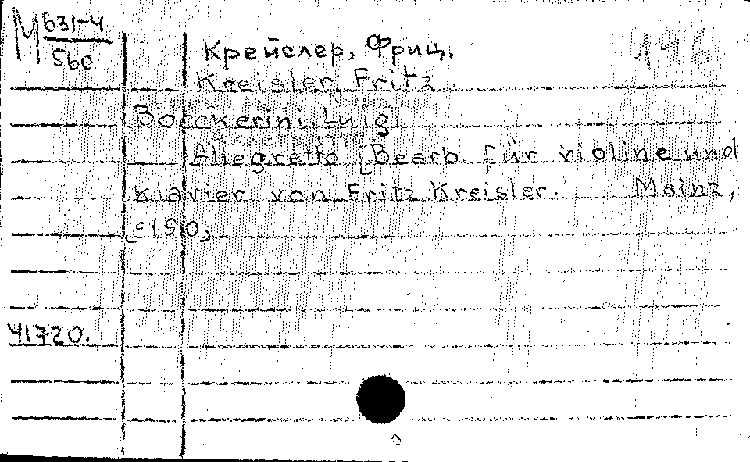 М 631-4
560
196
Крейслер, Фриц.
Kreisler, Fritz
Bockerini, Luigi
Allegretto [Bearb. für violine und
klavier von Fritz Kreisler. Mainz,
c1910,
41720.